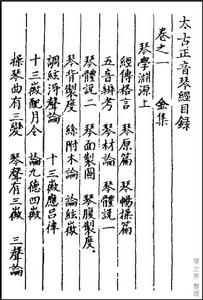 太古正音琴經目録
卷之一　金集
琴學淵源上
經傳格言　琴原篇　琴暢操篇
五音辨考　琴材論　琴體說一
琴體說二　琴面製圖　琴腹製度
琴背製度　絲附木論　論絃徽
調絃淂聲論　十三徽應吕律
十三徽配月令　論九德四徽
操琴曲有三變　琴聲有三徽　三聲論
琴之界 整理